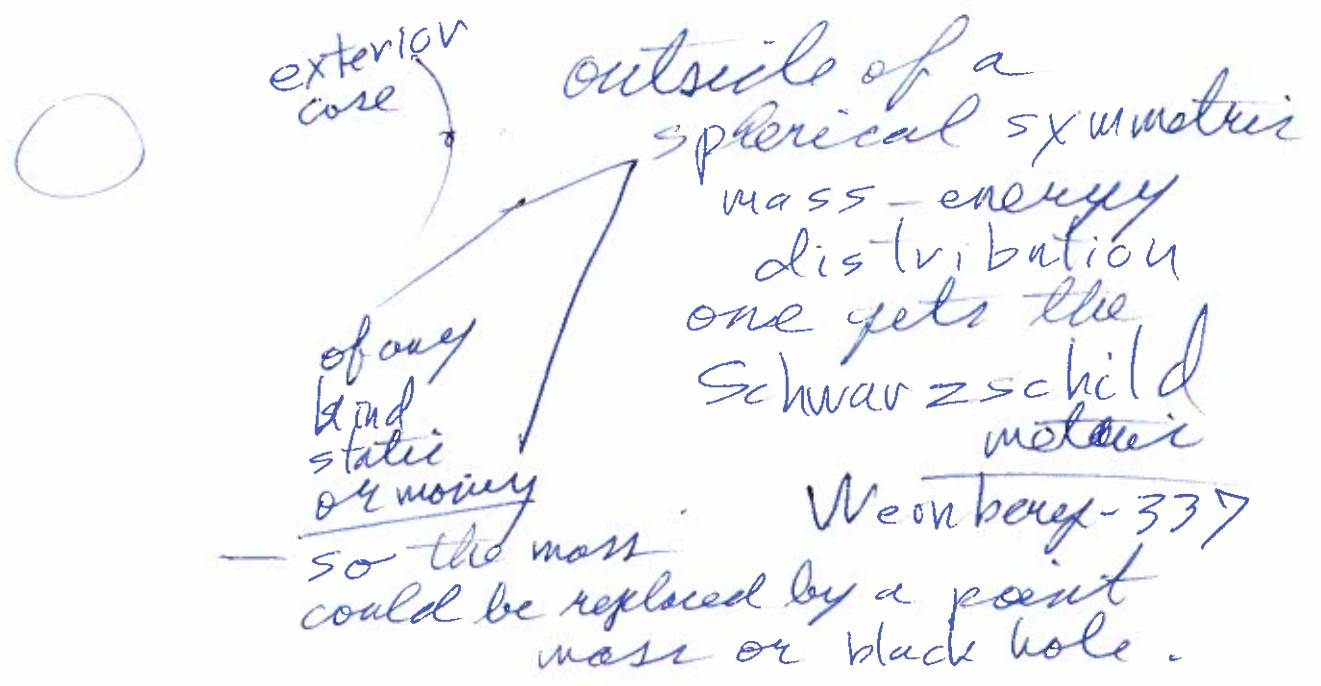 exterior
case
outside of a
spherical symmetric
mass-energy
distribution
one gets the
Schwarzschild
metric
Weinberg-337
of any
kind
static
or moving
— so the mass
could be replaced by a point
mass or black hole.